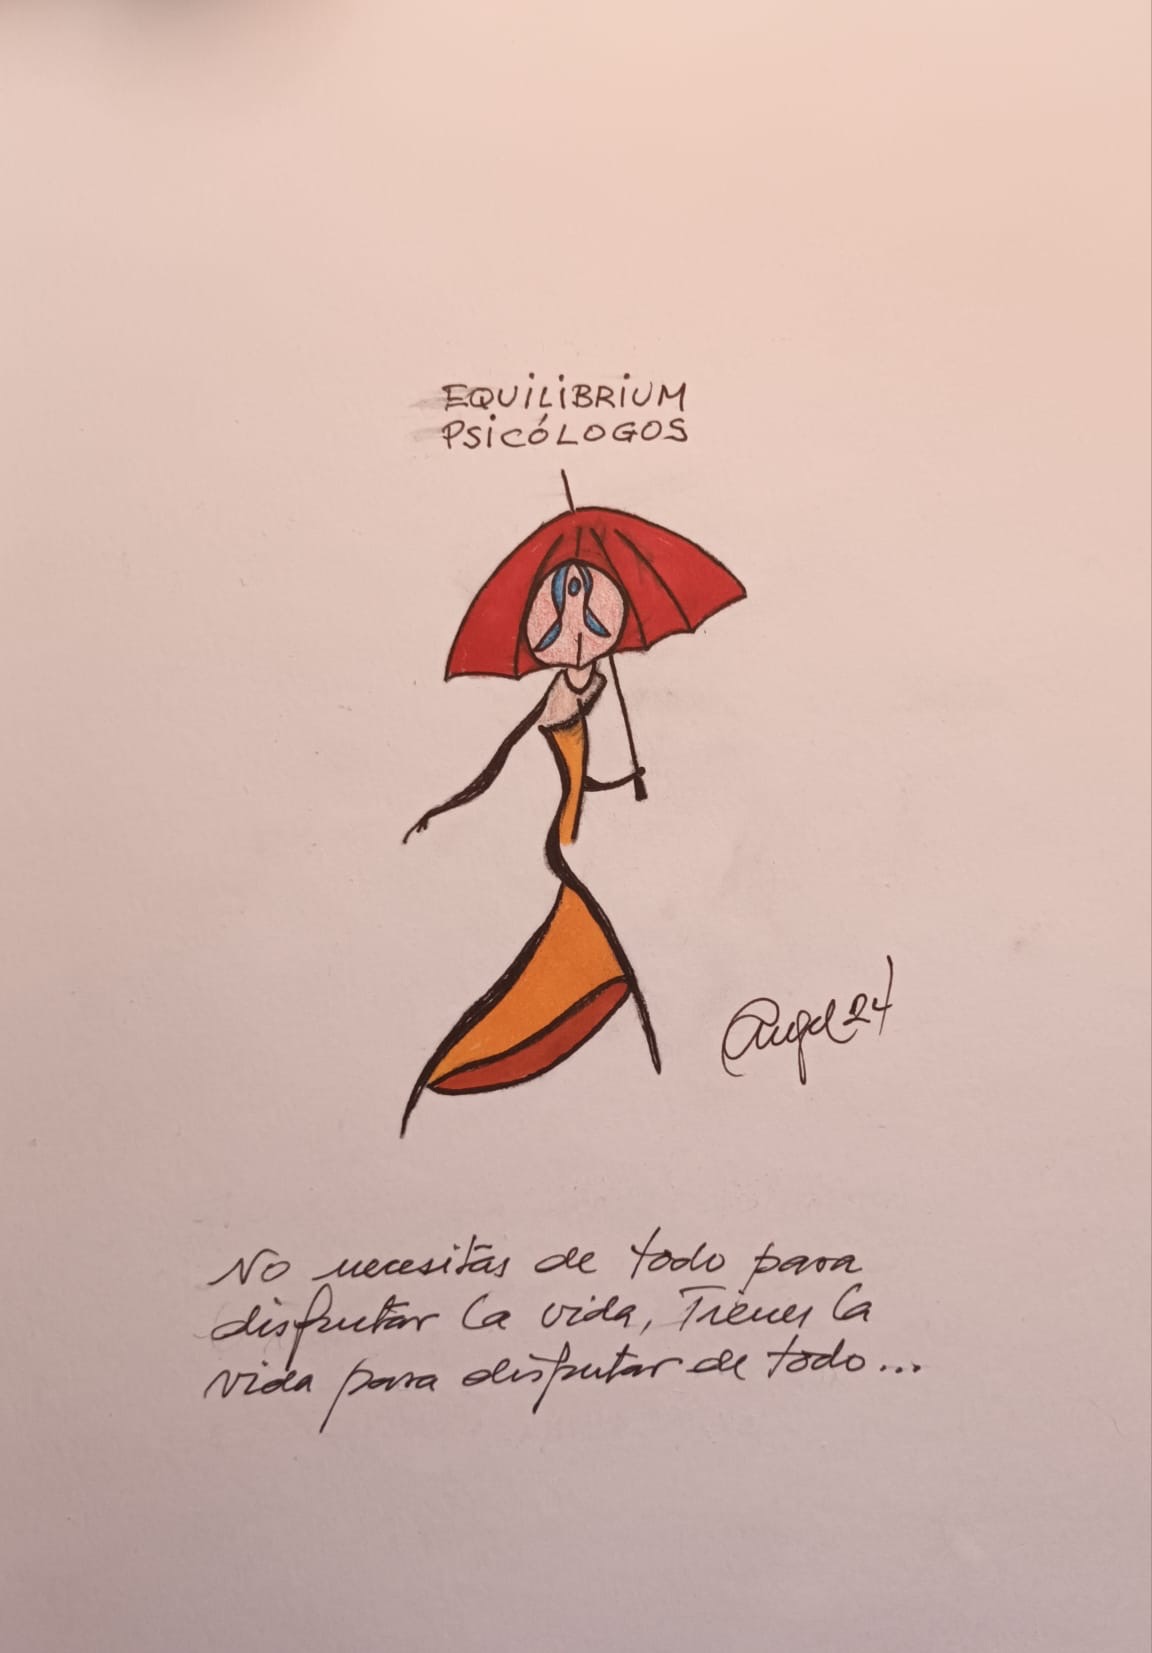 EQUILIBRIUM
PSICÓLOGOS
Angel 24
No necesitas de todo para
disfrutar la vida, Tienes la
vida para disfrutar de todo...